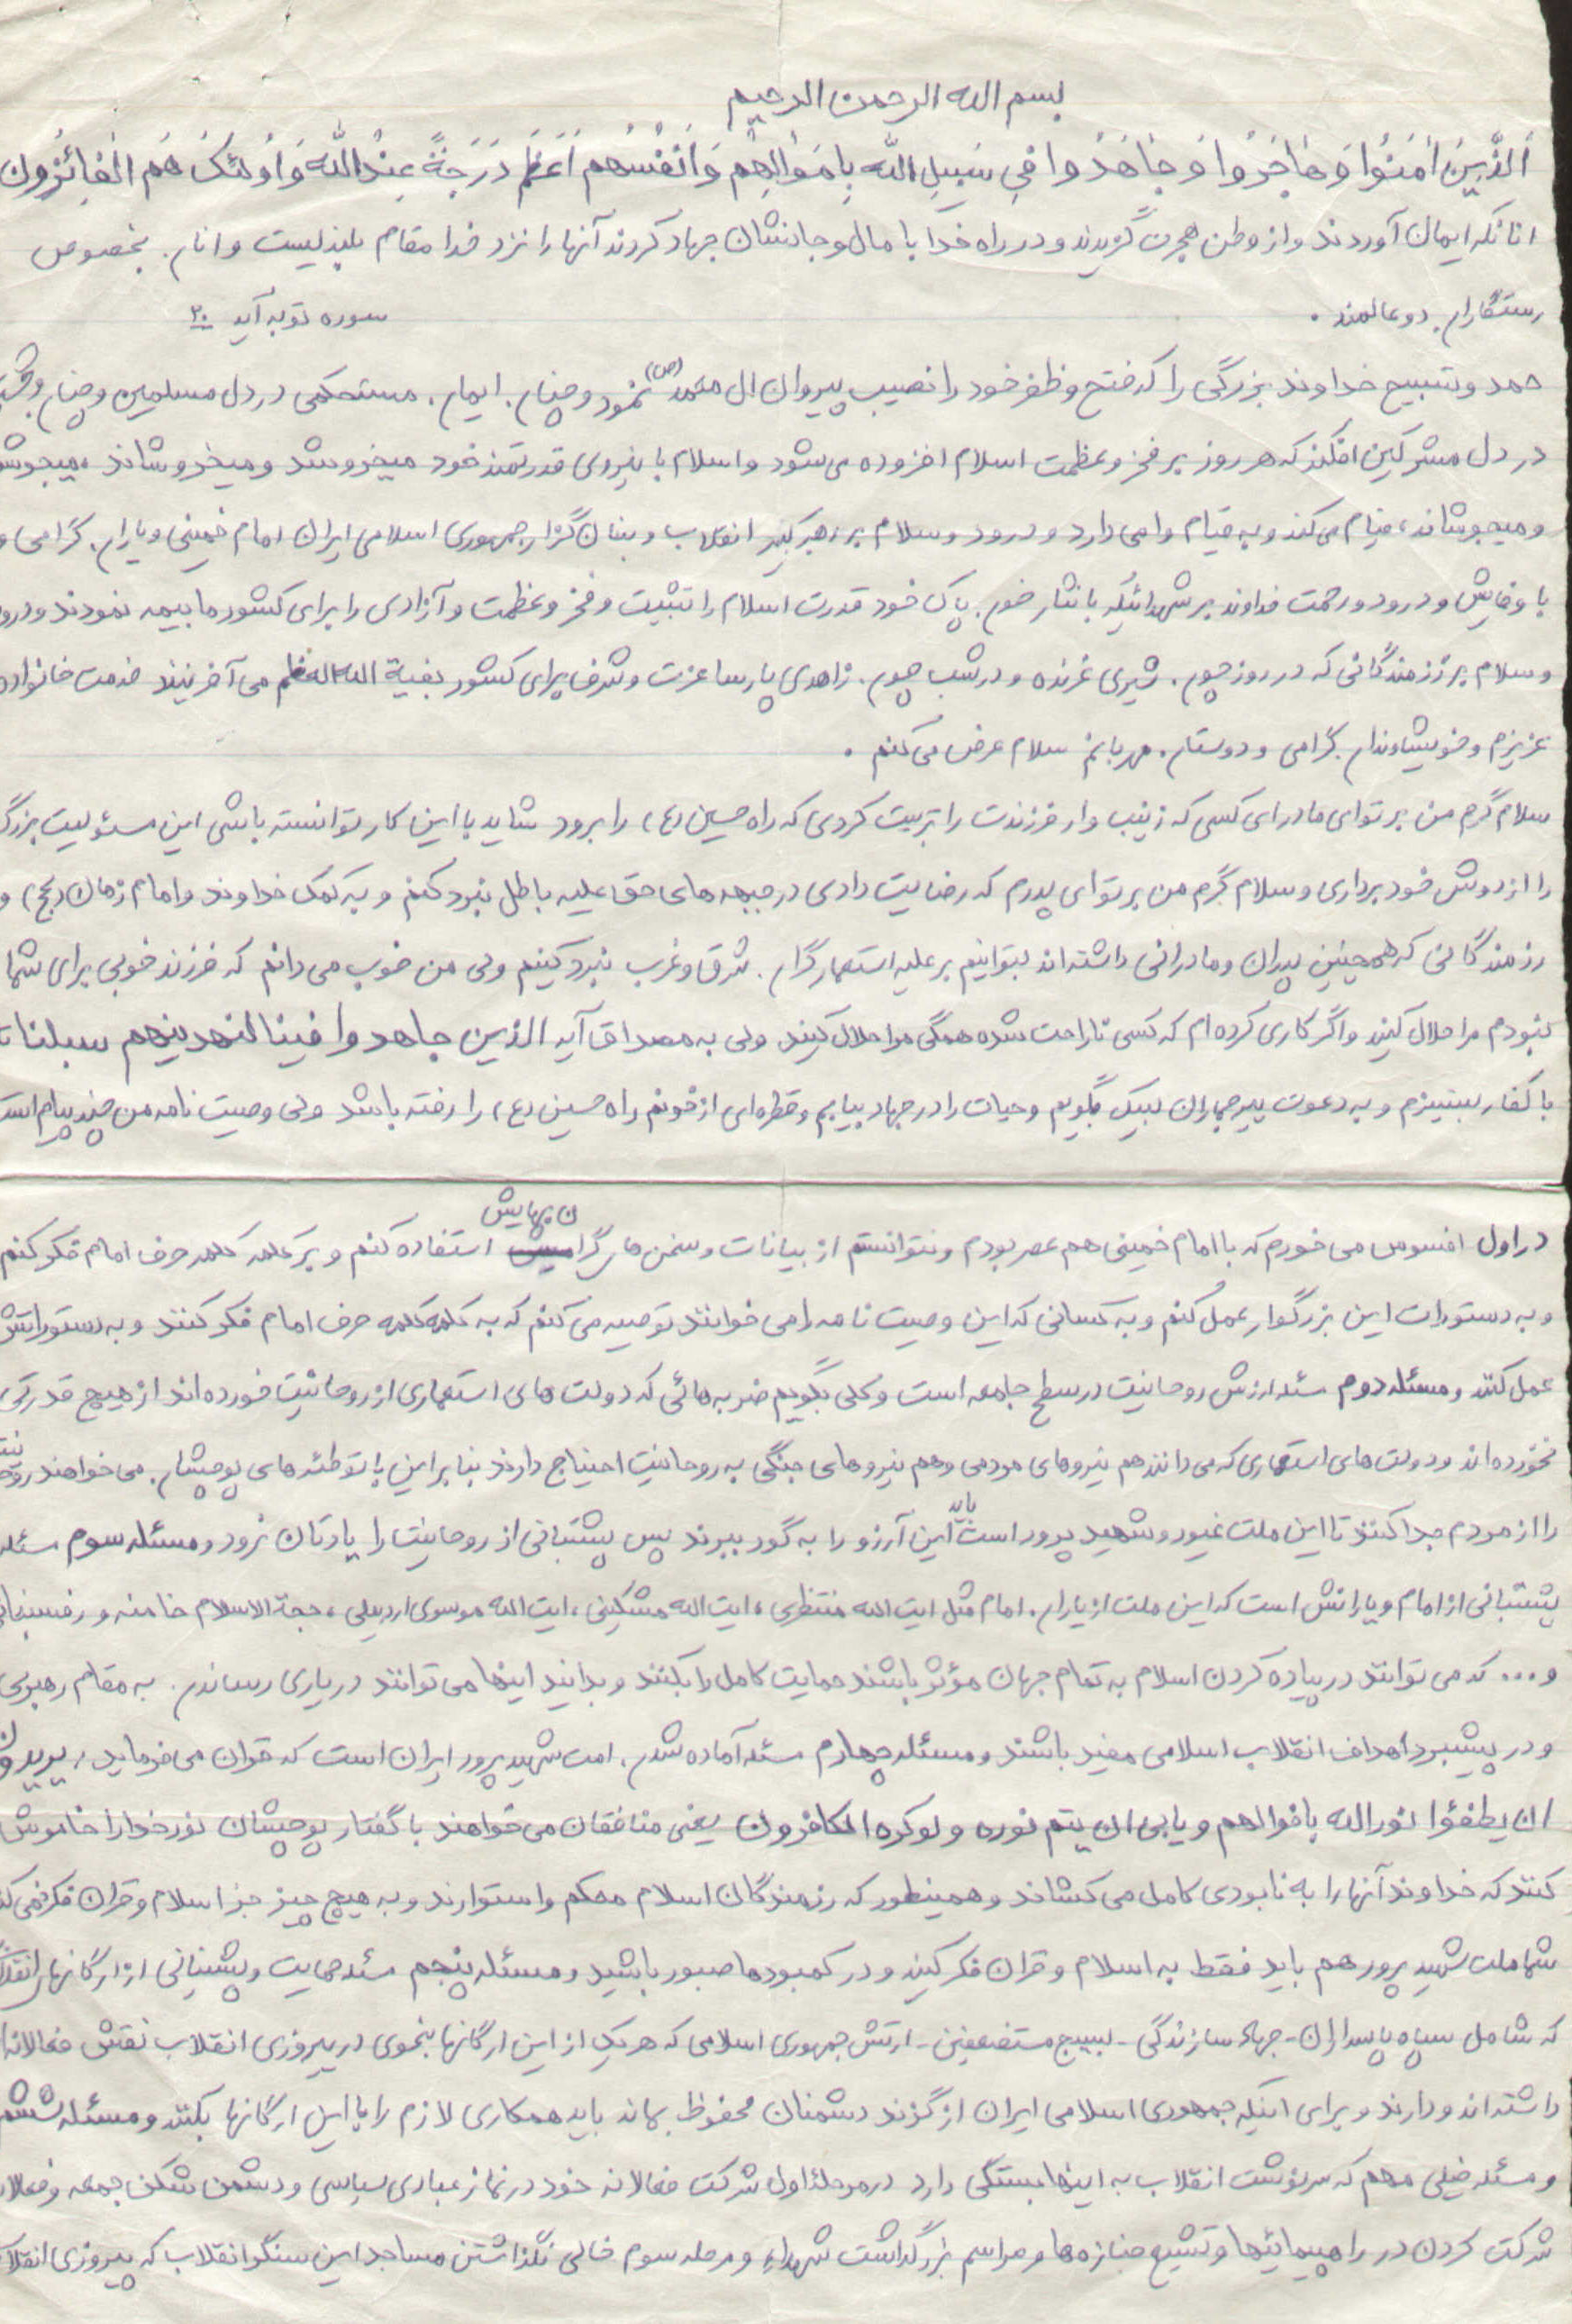 بسم الله الرحمن الرحیم
اَلَّذینَ اٰمَنُوا وَ هٰاجَرُوا وَ جٰاهَدُوا فی سَبیلِ الله بِاَموٰالِهِم وَ اَنْفُسِهُم اَعظَمُ دَرَجَةً عِنْدَاللهِ وَ اوُلئکَ هُم الفٰائِزُون
انانکه ایمان آوردند و از وطن هجرت گزیدند و در راه خدا با مال و جانشان جهاد کردند آنها را نزد خدا مقام بلندیست و انان بخصوص
رستگاران دو عالمند .
سوره توبه آیه ۲۰
حمد و تسبیح خداوند بزرگی را که فتح و ظفر خود را نصیب پیروان ال محمد (ص) نمود و چنان ایمان مستحکمی در دل مسلمین و چنان وحشت
در دل مشرکین افکند که هر روز بر فخر و عظمت اسلام افزوده می شود و اسلام با نیروی قدرتمند خود میخروشد و میخروشاند ، میجوشد
و میجوشاند ، قیام می کند و به قیام وامی دارد و درود و سلام بر رهبر کبیر انقلاب و بنیان گزار جمهوری اسلامی ایران امام خمینی و یاران گرامی و
با وفایش و درود و رحمت خداوند بر شهدائیکه با نثار خون پاک خود قدرت اسلام را تثبیت و فخر و عظمت و آزادی را برای کشور ما بیمه نمودند و درود
و سلام بر رزمندگانی که در روز چون شیری غرنده و در شب چون زاهدی پارسا عزت و شرف برای کشور بقیة الله العظم می آفرینند خدمت خانواده
عزیزم و خویشاوندان گرامی و دوستان مهربانم سلام عرض می کنم .
سلام گرم من بر تو ای مادر ای کسی که زینب وار فرزندت را تربیت کردی که راه حسین (ع) را برود شاید با این کار توانسته باشی این مسئولیت بزرگ
را از دوش خود برداری و سلام گرم من بر تو ای پدرم که رضایت دادی در جبهه های حق علیه باطل نبرد کنم و به کمک خداوند و امام زمان (عج) و
رزمندگانی که همچنین پدران و مادرانی داشته اند بتوانیم بر علیه استعمارگران شرق و غرب نبرد کنیم ولی من خوب می دانم که فرزند خوبی برای شما
نبودم مرا حلال کنید و اگر کاری کرده ام که کسی ناراحت شده همگی مرا حلال کنید ولی به مصداق آیه الذین جاهدوا فینا لنهدینهم سبلنا تا
با کفار بستیزم و به دعوت پیر جماران لبیک بگویم و حیات را در جهاد بیابم و قطره ای از خونم راه حسین (ع) را رفته باشد ولی وصیت نامه من چند پیام است
در اول افسوس می خورم که با امام خمینی هم عصر بودم و نتوانستم از بیانات و سخن های گرانبهایش استفاده کنم و بر کلمه کلمه حرف امام فکر کنم
و به دستورات این بزرگوار عمل کنم و به کسانی که این وصیت نامه را می خوانند توصیه می کنم که به کلمه کلمه حرف امام فکر کنند و به دستوراتش
عمل کنند و مسئله دوم مسئله ارزش روحانیت در سطح جامعه است و کلی بگویم ضربه هائی که دولت های استعماری از روحانیت خورده اند از هیچ قدرتی
نخورده اند و دولت های استعماری که می دانند هم نیروهای مردمی و هم نیروهای جنگی به روحانیت احتیاج دارند بنابراین با توطئه های پوچشان می خواهند روحانیت
را از مردم جدا کنند تا این ملت غیور و شهید پرور است باید این آرزو را به گور ببرند پس پشتبانی از روحانیت را یادتان نرود و مسئله سوم مسئله
پشتبانی از امام و یارانش است که این ملت از یاران امام مثل ایت الله منتظری ، ایت الله مشکینی ، ایت الله موسوی اردبیلی ، حجة الاسلام خامنه و رفسنجانی
و ... که می توانند در پیاده کردن اسلام به تمام جهان مؤثر باشند حمایت کامل را بکنند و بدانید اینها می توانند در یاری رساندن به مقام رهبری
و در پیشبرد اهداف انقلاب اسلامی مفید باشند و مسئله چهارم مسئله آماده شدن امت شهید پرور ایران است که قران می فرماید ، یریدون
ان یطفئوا نورالله بافوالهم و یابی ان یتم نوره و لو کره الکافرون یعنی منافقان می خواهند با گفتار پوچشان نور خدا را خاموش
کنند که خداوند آنها را به نابودی کامل می کشاند و همینطور که رزمندگان اسلام محکم و استوارند و به هیچ چیز جز اسلام و قران فکر نمی کنند
شما ملت شهید پرور هم باید فقط به اسلام و قران فکر کنید و در کمبودها صبور باشید و مسئله پنجم مسئله حمایت و پشتیبانی از ارگانهای انقلاب
که شامل سپاه پاسداران - جهاد سازندگی - بسیج مستضعفین - ارتش جمهوری اسلامی که هر یک از این ارگانها بنحوی در پیروزی انقلاب نقش فعالانه
داشته اند و دارند و برای اینکه جمهوری اسلامی ایران از گزند دشمنان محفوظ بماند باید همکاری لازم را با این ارگانها بکنند و مسئله ششم
و مسئله خیلی مهم که سرنوشت انقلاب به اینها بستگی دارد در مرحله اول شرکت فعالانه خود در نماز عبادی سیاسی و دشمن شکن جمعه و فعالانه
شرکت کردن در راهپیمائیها و تشیع جنازه ها و مراسم بزرگداشت شهداء و مرحله سوم خالی نگذاشتن مساجد این سنگر انقلاب که پیروزی انقلاب